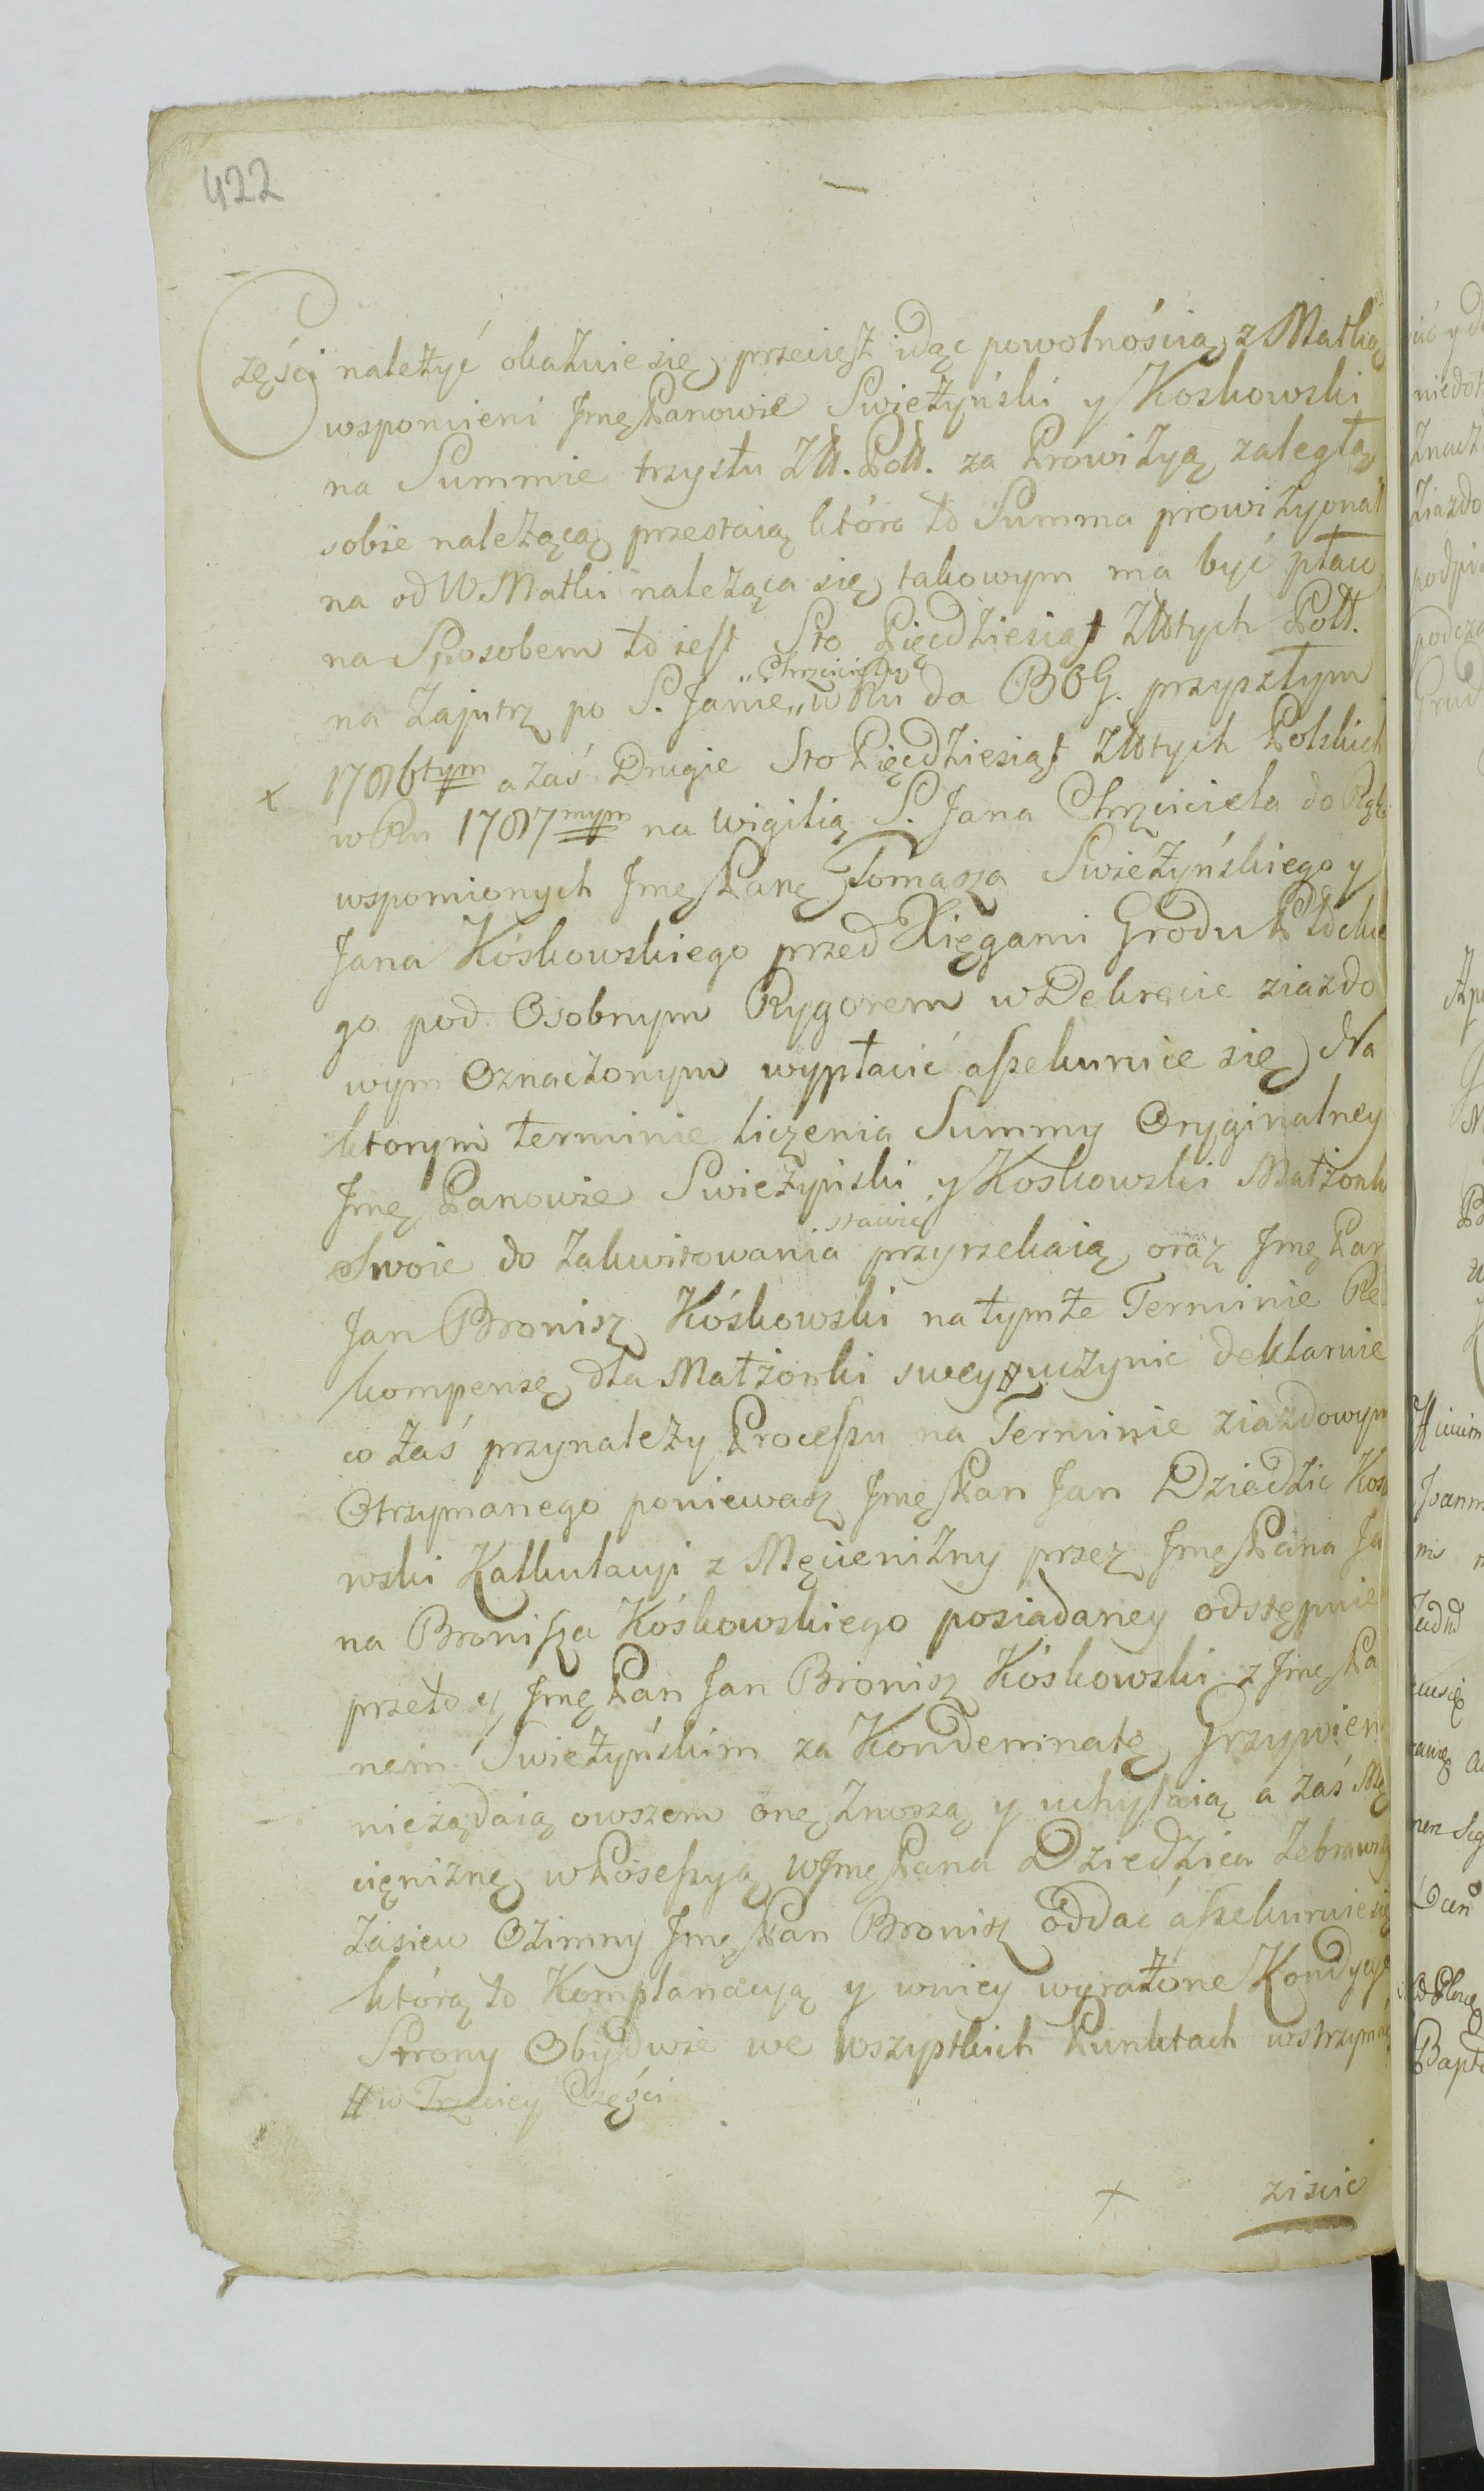 422
Części należyć okażuie się, przecięż idąc powolnością z Matką
wspomieni Jmę Panowie Swieżyński y Koskowski
na Summie trzystu Złł. Poll. za Prowiżyą zaległą
sobie należącą przestaią która to Summa prowiżyonal
na od W Matki należąca się, takowym ma być płaco
na Sposobem to iest Sto Pięcdżiesiąt Złłotych Poll.
na Zajutrz po S. Janie „Chrzcicielu“ w Rku da BOG. przyszłym
1786tym a zaś Drugie Sto Pięcdżiesiąt Złłotych Polskich
x
w Rku 1787mym na wigilią S. Jana Chrzciciela do Rąk
wspomionych Jmę Panę Tomasza Swieżyńskiego y
Jana Kóskowskiego przed Xięgami Grodu Płockie
go pod Osobnym Rygorem w Dekrecie ziazdo
wym Oznaczonym wypłacić assekuruie się, Na
ktorym terminie liczenia Summy Oryginalney
Jmę Panowie Swieżyński y Koskowski Małżonk
Swoie do Zakwitowania stawić przyrzekaią, oraz Jmę Pan
Jan Bronisz Kóskowski na tymże Terminie Re
kompensę dla Małżonki swey # uczynic deklaruie
co zaś przynależy Processu na Terminie ziazdowym
Otrzymanego poniewasz Jmę Pan Jan Dziedzic Kosk
wski Kalkulacyi z Męcienizny przez Jmę Pana Ja
na Bronisza Kóskowskiego posiadaney odstępuie
przeto y Jmę Pan Jan Bronisz Kóskowski z Jmę Pa
nem Swieżyńskim za Kondemnatę Grzywien
nieżądaią owszem onę znoszą y uchylaią a zaś Mę
cięniznę w Posessyą W Jmę Pana Dziedzica Zebrawszy
Zasiew Ozimny Jmę Pan Bronisz oddać assekuruie się
którą to Komplanacyą y wniey wyrażone Kondycye
Strony Obydwie we wszystkich Punktach wstrzymać
# w Trzeciey Części
x
ziscic